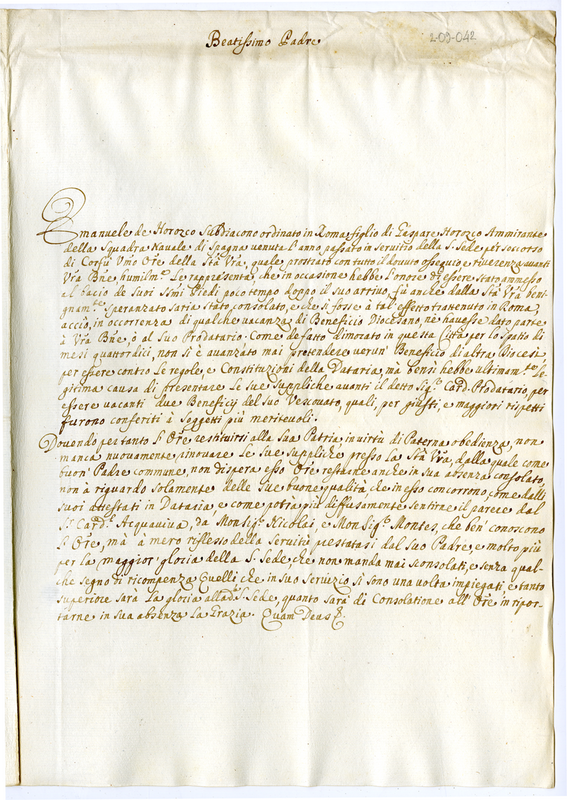 Beatissimo Padre
2-09-042
Emanuele de Horozco Subdiacono ordinato in Roma, figlio di Gaspare Horozco Ammirante
della Squadra Navale di Spagna venuta l'anno passato in servitio della S. Sede, per soccorso
di Corfù Vmo Ore della Stà Vrã, quale prostrato con tutto il dovuto ossequio e riverenza avanti
Vrã Bne, humilmte Le rappresenta, che in occasione hebbe l'onore di essere stato ammesso
al bacio de Suoi Ssmi Piedi poco tempo doppo il suo arrivo, fù anche dalla Stà Vrã beni-
gnamte Speranzato saria stato consolato, e che si fosse à tal' effetto trattenuto in Roma,
acciò, in occorrenza di qualche vacanza di Beneficio Diocesano, ne havesse dato parte
à Vrã Bne, ò al Suo Prodatario. Come de fatto dimorato in questa Città per lo spatio di
mesi quattordici, non si è avanzato mai pretendere verun' Beneficio di altre Diocesi
per essere contro Le regole, e Constitutioni della Dataria, mà bensì hebbe ultimamte le-
gitima causa di presentare Le sue suppliche avanti il detto Sigr Card. Prodatario, per
essere vacanti due Beneficij del suo Vescovato, quali, per giusti, e maggiori rispetti
furono conferiti à Soggetti più meritevoli.
Dovendo per tanto l'Ore restituirsi alla Sua Patria, in virtù di Paterna obedienza, non
manca nuovamente rinovare Le Sue Suppliche presso La Stà Vrã, dalla quale come
buon' Padre commune, non dispera esso Ore restare anche in Sua absenza consolato,
non à riguardo solamente delle Sue buone qualità che in esso concorrono, come dalli
suoi attestati in Dataria, e come potrà più diffusamente sentirne il parere dal
Sr Cardl Acquaviva, da Monsigr Nicolai, e MonSigr Montes, che ben' conoscono
l'Ore, mà à mero riflesso della Servitù prestatasi dal Suo Padre, e molto più
per la maggior' gloria della S. Sede, che non manda mai sconsolati, e senza qual-
che segno di ricompenza Quelli che in suo Servizio si sono una volta impiegati, e tanto
superiore sarà La gloria alla S. Sede, quanto sarà di Consolatione all' Ore in ripor-
tarne in sua absenza La Grazia. Quam Deus &c.